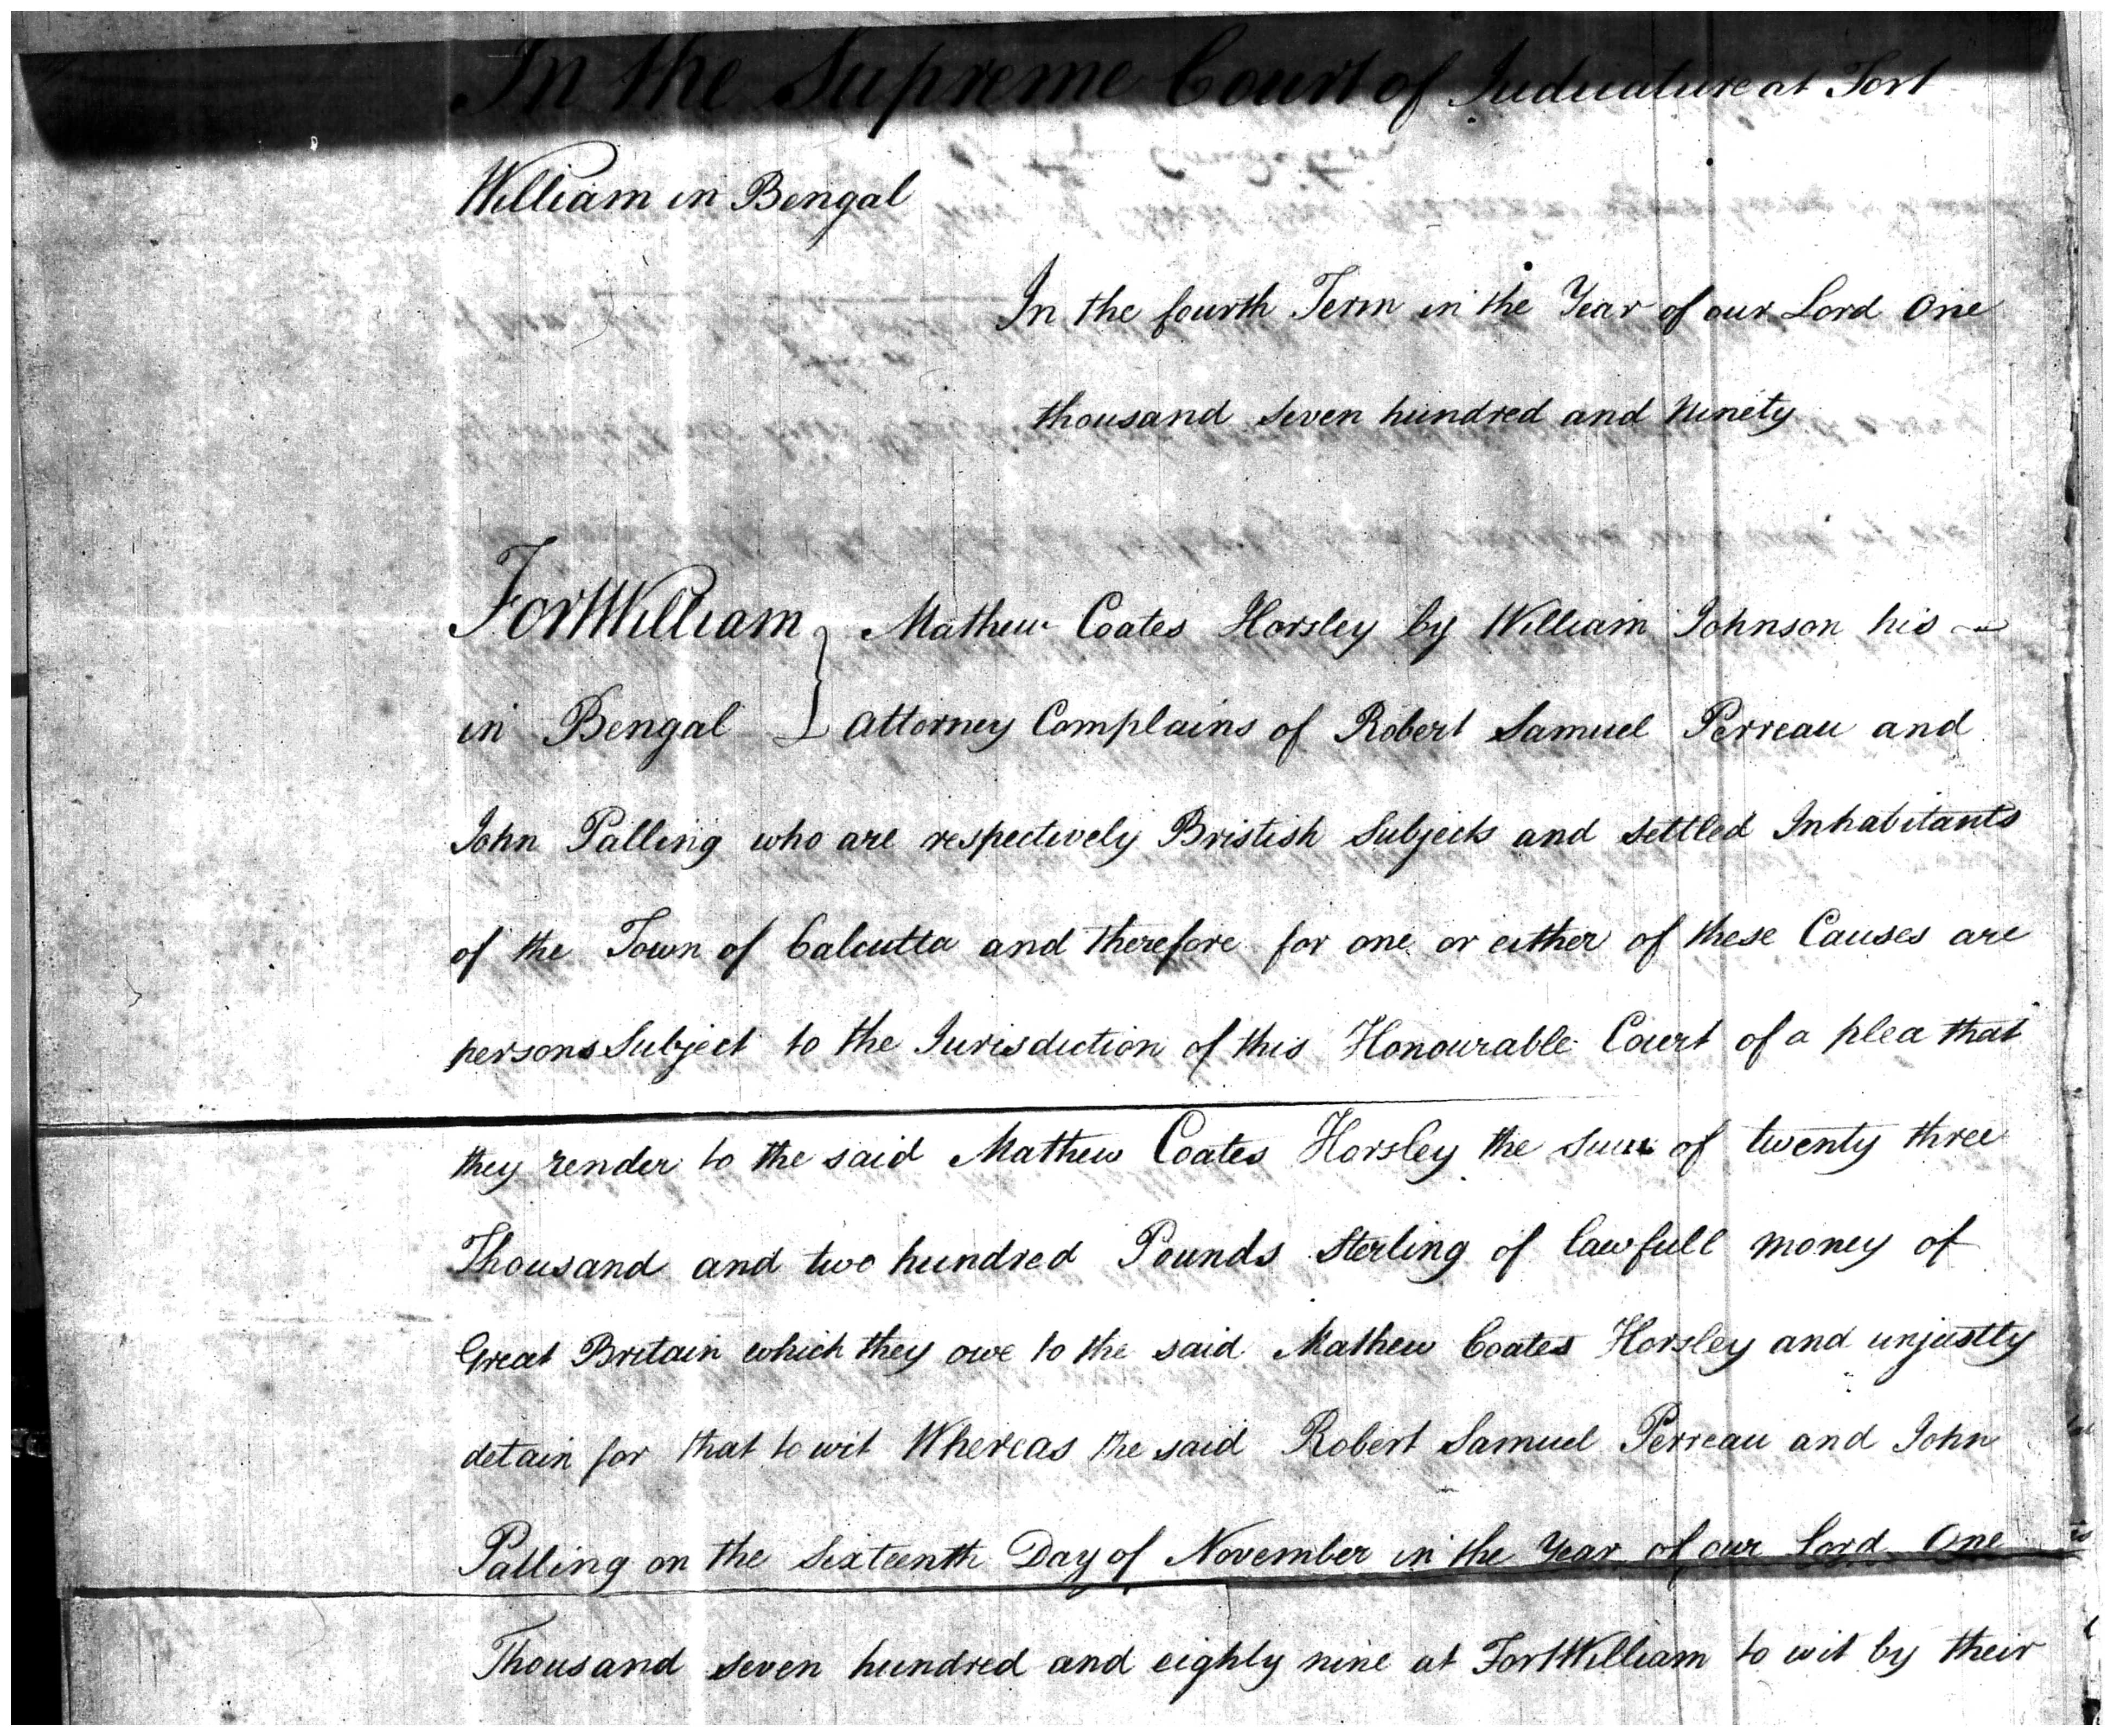 In the Supreme Court of Judicature at Fort
William in Bengal
In the fourth Term in the Year of our Lord One
thousand seven hundred and Ninety
FortWilliam } Mathew Coates Horsley by William Johnson his
in Bengal } attorney Complains of Robert Samuel Perreau and
John Palling who are respectively Bristish Subjects and settled Inhabitants
of the Town of Calcutta and therefore for one or either of these Causes are
persons Subject to the Jurisdiction of this Honourable Court of a plea that
they render to the said Mathew Coates Horsley the Sum of twenty three
Thousand and two hundred Pounds Sterling of lawfull money of
Great Britain which they owe to the said Mathew Coates Horsley and unjustly
detain for that to wit Whereas the said Robert Samuel Perreau and John
Palling on the Sixteenth Day of November in the Year of our Lord One
Thousand seven hundred and eighty nine at FortWilliam to wit by their